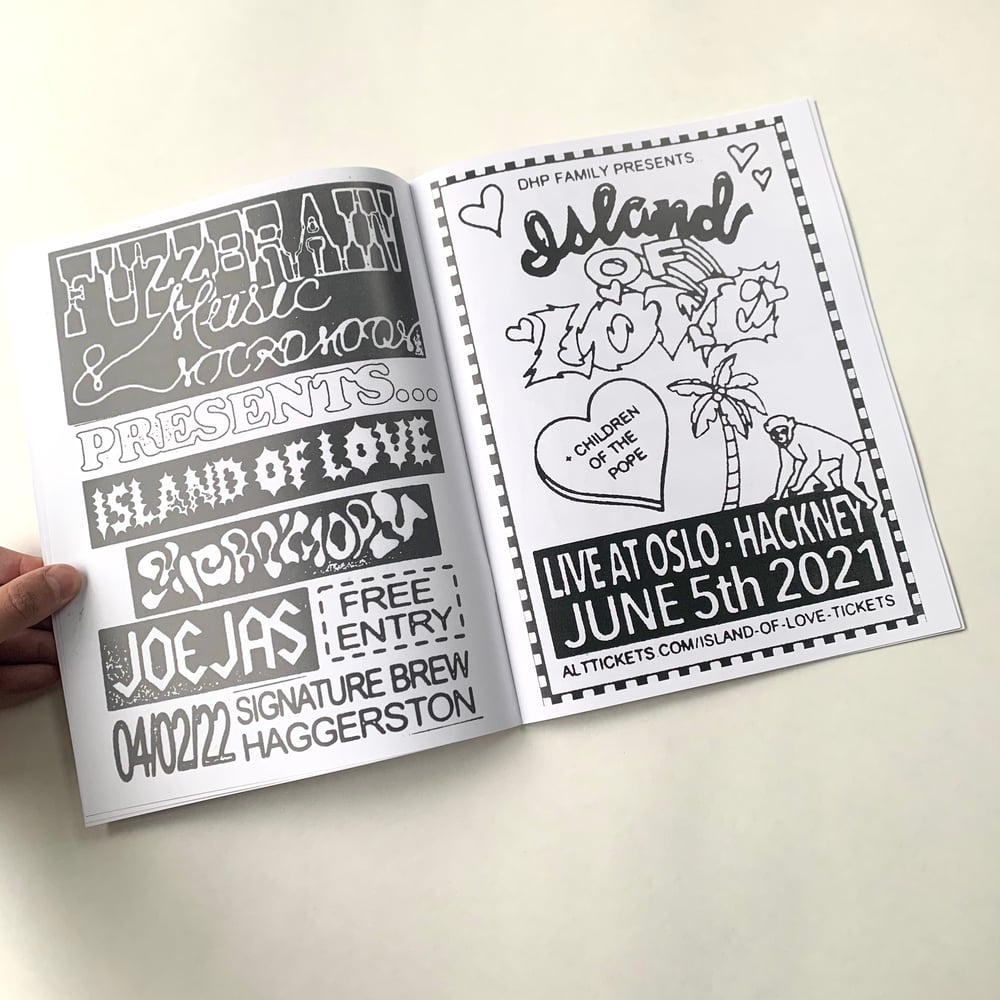 FUZZBRAIN
Music
&
PRESENTS...
ISLAND OF LOVE
JOE JAS
FREE
ENTRY
04/02/22
SIGNATURE BREW
HAGGERSTON
DHP FAMILY PRESENTS..
Island
OF
LOVE
+ CHILDREN
OF THE
POPE
LIVE AT OSLO - HACKNEY
JUNE 5th 2021
ALTTICKETS.COM/ISLAND-OF-LOVE-TICKETS